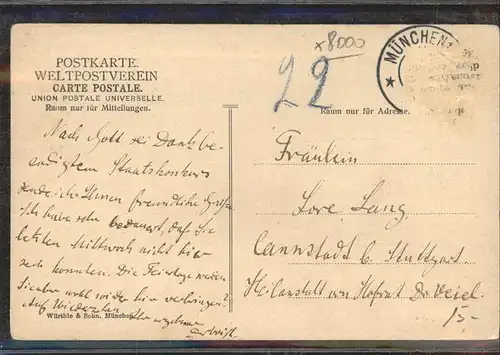 POSTKARTE.
WELTPOSTVEREIN
CARTE POSTALE.
UNION POSTALE UNIVERSELLE.
Raum nur für Mitteilungen.
Nach Gott sei Dank be-
endigtem Staatskonkurs
sende ich Ihnen freundliche Grüße
Ich habe sehr bedauert, daß Sie
letzten Mittwoch nicht hier
sein konnten. Die Feiertage werden
Sie aber wohl wieder hier verbringen?
Auf Wiedersehen
Ihr ergebener
Würthle & Sohn, München
x8000
22
MÜNCHEN
Raum nur für Adresse.
Fräulein
Lore Lang
Cannstadt b. Stuttgart
Heilanstalt von Hofrat Dr Veiel.
15-